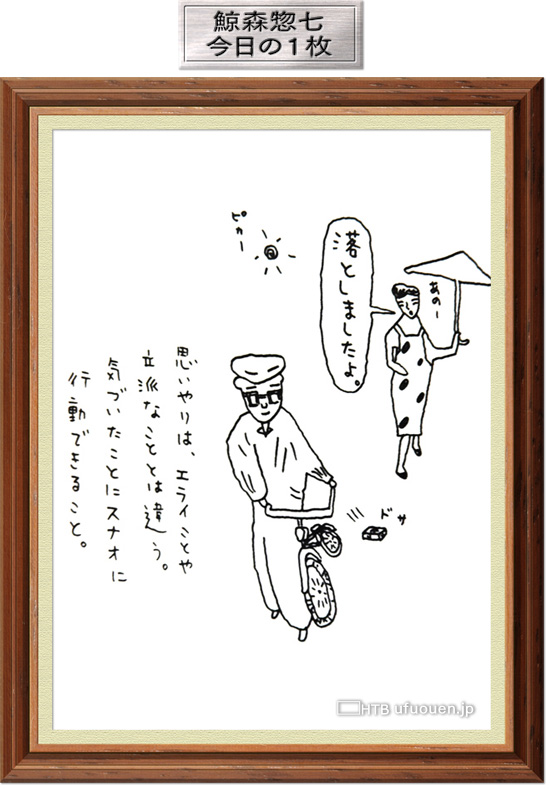 鯨森惣七
今日の1枚
ピカー
あのー
落としましたよ。
ドサ
思いやりは、エライことや
立派なこととは違う。
気づいたことにスナオに
行動できること。
HTB ufuouen.jp